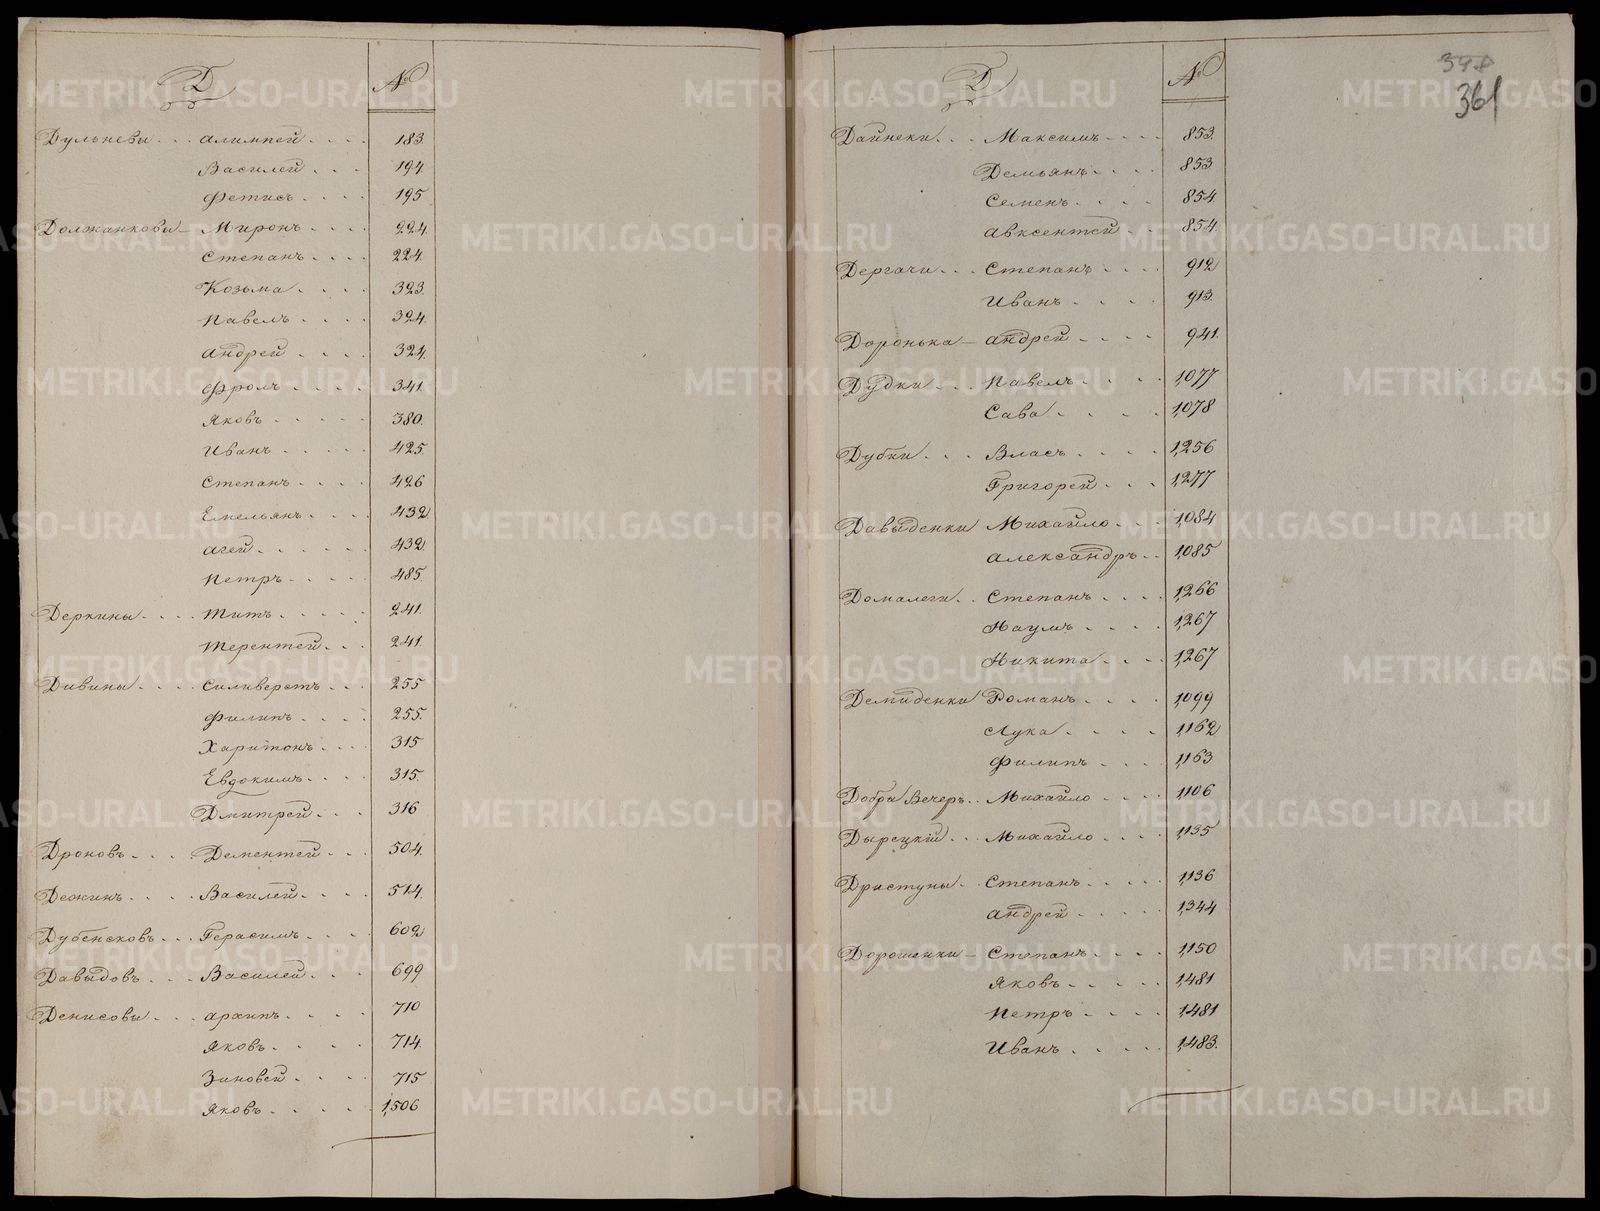 Д №
Дульневы . . . Алимпей . . . . 183.
Василей . . . 194.
Фетисъ . . . . 195
Должанковы – Миронъ . . . . 224.
Степанъ . . . . 224.
Козьма . . . . 323.
Павелъ . . . . 324.
Андрей . . . . 324.
Фролъ . . . . 341.
Яковъ . . . . . 380.
Иванъ . . . . . 425.
Степанъ . . . . 426
Емельянъ . . . . 432.
Агей . . . . . . 432.
Петръ . . . . . 485.
Деркины . . . . Титъ . . . . . 241.
Терентей . . . 241.
Дивины . . . . Силиверстъ . . . 255
Филипъ . . . . 255.
Харитонъ . . . 315
Евдокимъ . . . . 315.
Дмитрей . . . 316
Дроновъ . . . . Дементей . . . 504.
Дежинъ . . . . Василей . . . . 514.
Дубенсковъ . . . Герасимъ . . . . 602
Давыдовъ . . . Василей . . . 699
Денисовы . . . Архипъ . . . . 710
Яковъ . . . . . 714.
Зиновей . . . . 715
Яковъ . . . . . 1,506
Д №
348
361
Дайнеки . . . Максимъ . . . . 853.
Демьянъ . . . . 853
Семенъ . . . . 854.
Авксентей . . 854.
Дергачи . . . Степанъ . . . . 912
Иванъ . . . . 913.
Доронька – Андрей . . . . 941.
Дудки . . . Павелъ . . . . 1,077
Сава . . . . 1,078
Дубки . . . Власъ . . . . 1,256
Григорей . . . 1,277
Давыденки Михайло . . . 1,084
Александръ . . 1,085
Домалеги . . Степанъ . . . . 1,266
Наумъ . . . . 1,267
Никита . . . . 1,267
Демиденки Романъ . . . . 1,099
Лука . . . . 1,162
Филипъ . . . 1,163
Добра Вечеръ . . Михайло . . . . 1,106
Дырецкій . . . Михайло . . . . 1,135
Дристуны . . Степанъ . . . . . 1,136
Андрей . . . . . 1,344
Дорошенки – Степанъ . . . . 1,150
Яковъ . . . . . 1,481
Петръ . . . . 1,481
Иванъ . . . . . 1,483.
METRIKI.GASO-URAL.RU